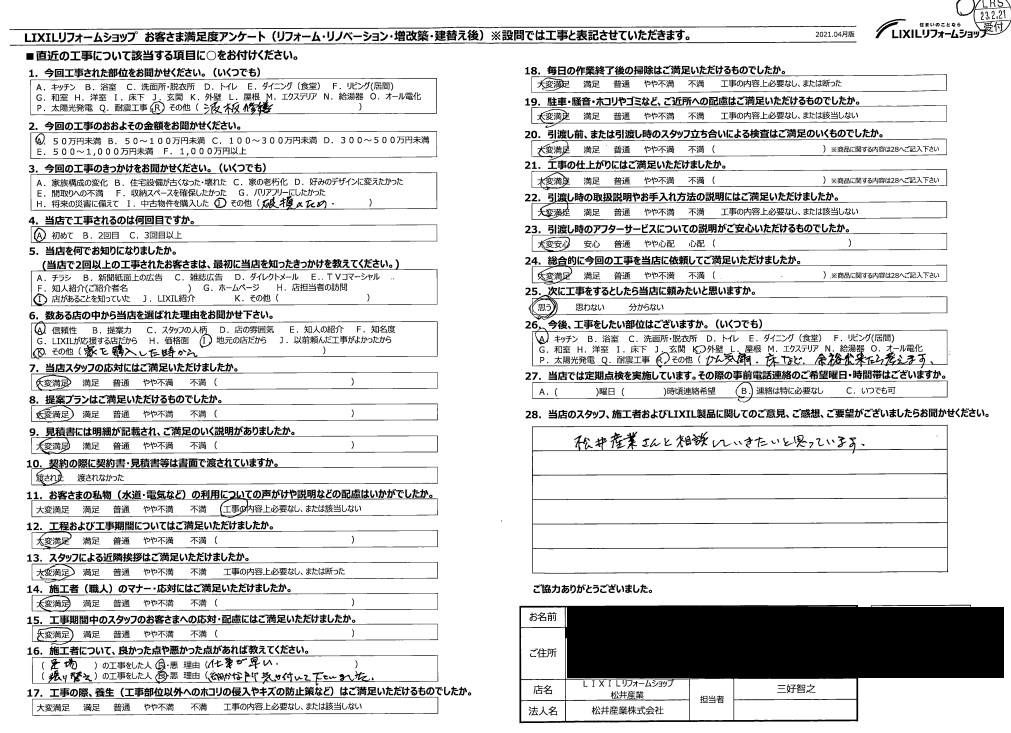 LIXILリフォームショップ お客さま満足度アンケート（リフォーム・リノベーション・増改築・建替え後）※設問では工事と表記させていただきます。
2021.04月版
住まいのことなら
LIXILリフォームショップ
LRS
23.2.21
受付
■直近の工事について該当する項目に○をお付けください。
1．今回工事された部位をお聞かせください。（いくつでも）
A．キッチン B．浴室 C．洗面所・脱衣所 D．トイレ E．ダイニング（食堂） F．リビング(居間)
G．和室 H．洋室 I．床下 J．玄関 K．外壁 L．屋根 M．エクステリア N．給湯器 O．オール電化
P．太陽光発電 Q．耐震工事 R その他（ 波板修繕
2．今回の工事のおおよその金額をお聞かせください。
A．50万円未満 B．50～100万円未満 C．100～300万円未満 D．300～500万円未満
E．500～1,000万円未満 F．1,000万円以上
3．今回の工事のきっかけをお聞かせください。（いくつでも）
A．家族構成の変化 B．住宅設備が古くなった・壊れた C．家の老朽化 D．好みのデザインに変えたかった
E．間取りへの不満 F．収納スペースを確保したかった G．バリアフリーにしたかった
H．将来の災害に備えて I．中古物件を購入した J その他（破損のため． ）
4．当店で工事されるのは何回目ですか。
A 初めて B．2回目 C．3回目以上
5．当店を何でお知りになりましたか。
(当店で2回以上の工事されたお客さまは、最初に当店を知ったきっかけを教えてください。)
A．チラシ B．新聞紙面上の広告 C．雑誌広告 D．ダイレクトメール E．ＴＶコマーシャル
F．知人紹介(ご紹介者名 ) G．ホームページ H．店担当者の訪問
I 店があることを知っていた J．LIXIL紹介 K．その他（ ）
6．数ある店の中から当店を選ばれた理由をお聞かせ下さい。
A 信頼性 B．提案力 C．スタッフの人柄 D．店の雰囲気 E．知人の紹介 F．知名度
G．LIXILが応援する店だから H．価格面 I 地元の店だから J．以前頼んだ工事がよかったから
K その他（ 家を購入した時から ）
7．当店スタッフの応対にはご満足いただけましたか。
大変満足 満足 普通 やや不満 不満 （ ）
8．提案プランはご満足いただけるものでしたか。
大変満足 満足 普通 やや不満 不満 （ ）
9．見積書には明細が記載され、ご満足のいく説明がありましたか。
大変満足 満足 普通 やや不満 不満 （ ）
10．契約の際に契約書・見積書等は書面で渡されていますか。
渡された 渡されなかった
11．お客さまの私物（水道・電気など）の利用についての声がけや説明などの配慮はいかがでしたか。
大変満足 満足 普通 やや不満 不満 工事の内容上必要なし、または該当しない
12．工程および工事期間についてはご満足いただけましたか。
大変満足 満足 普通 やや不満 不満 （ ）
13．スタッフによる近隣挨拶はご満足いただけましたか。
大変満足 満足 普通 やや不満 不満 工事の内容上必要なし、または断った
14．施工者（職人）のマナー・応対にはご満足いただけましたか。
大変満足 満足 普通 やや不満 不満 （ ）
15．工事期間中のスタッフのお客さまへの応対・配慮にはご満足いただけましたか。
大変満足 満足 普通 やや不満 不満 （ ）
16．施工者について、良かった点や悪かった点があれば教えてください。
（ 足場 ）の工事をした人 良・悪 理由（仕事が早い． ）
（ 張り替え ）の工事をした人 良・悪 理由（細かな所 気が付いて下さいました．
17．工事の際、養生（工事部位以外へのホコリの侵入やキズの防止策など）はご満足いただけるものでしたか。
大変満足 満足 普通 やや不満 不満 工事の内容上必要なし、または該当しない
18．毎日の作業終了後の掃除はご満足いただけるものでしたか。
大変満足 満足 普通 やや不満 不満 工事の内容上必要なし、または断った
19．駐車・騒音・ホコリやゴミなど、ご近所への配慮はご満足いただけるものでしたか。
大変満足 満足 普通 やや不満 不満 （ ）
20．引渡し前、または引渡し時のスタッフ立ち合いによる検査はご満足のいくものでしたか。
大変満足 満足 普通 やや不満 不満 （ ）※商品に関する内容は28へご記入下さい
21．工事の仕上がりにはご満足いただけましたか。
大変満足 満足 普通 やや不満 不満 （ ）※商品に関する内容は28へご記入下さい
22．引渡し時の取扱説明やお手入れ方法の説明にはご満足いただけましたか。
大変満足 満足 普通 やや不満 不満 工事の内容上必要なし、または該当しない
23．引渡し時のアフターサービスについての説明がご安心いただけるものでしたか。
大変安心 安心 普通 やや心配 心配 （ ）
24．総合的に今回の工事を当店に依頼してご満足いただけましたか。
大変満足 満足 普通 やや不満 不満 （ ）※商品に関する内容は28へご記入下さい
25．次に工事をするとしたら当店に頼みたいと思いますか。
思う 思わない 分からない
26．今後、工事をしたい部位はございますか。（いくつでも）
A．キッチン B．浴室 C．洗面所・脱衣所 D．トイレ E．ダイニング（食堂） F．リビング(居間)
G．和室 H．洋室 I．床下 J．玄関 K 外壁 L．屋根 M．エクステリア N．給湯器 O．オール電化
P．太陽光発電 Q．耐震工事 R その他（
27．当店では定期点検を実施しています。その際の事前電話連絡のご希望曜日・時間帯はございますか。
A．（ ）曜日（ ）時頃連絡希望 B．連絡は特に必要なし C．いつでも可
28．当店のスタッフ、施工者およびLIXIL製品に関してのご意見、ご感想、ご要望がございましたらお聞かせください。
松井産業さんと相談していきたいと思っています．
ご協力ありがとうございました。
お名前
ご住所
店名 ＬＩＸＩＬリフォームショップ 松井産業 担当者 三好智之
法人名 松井産業株式会社